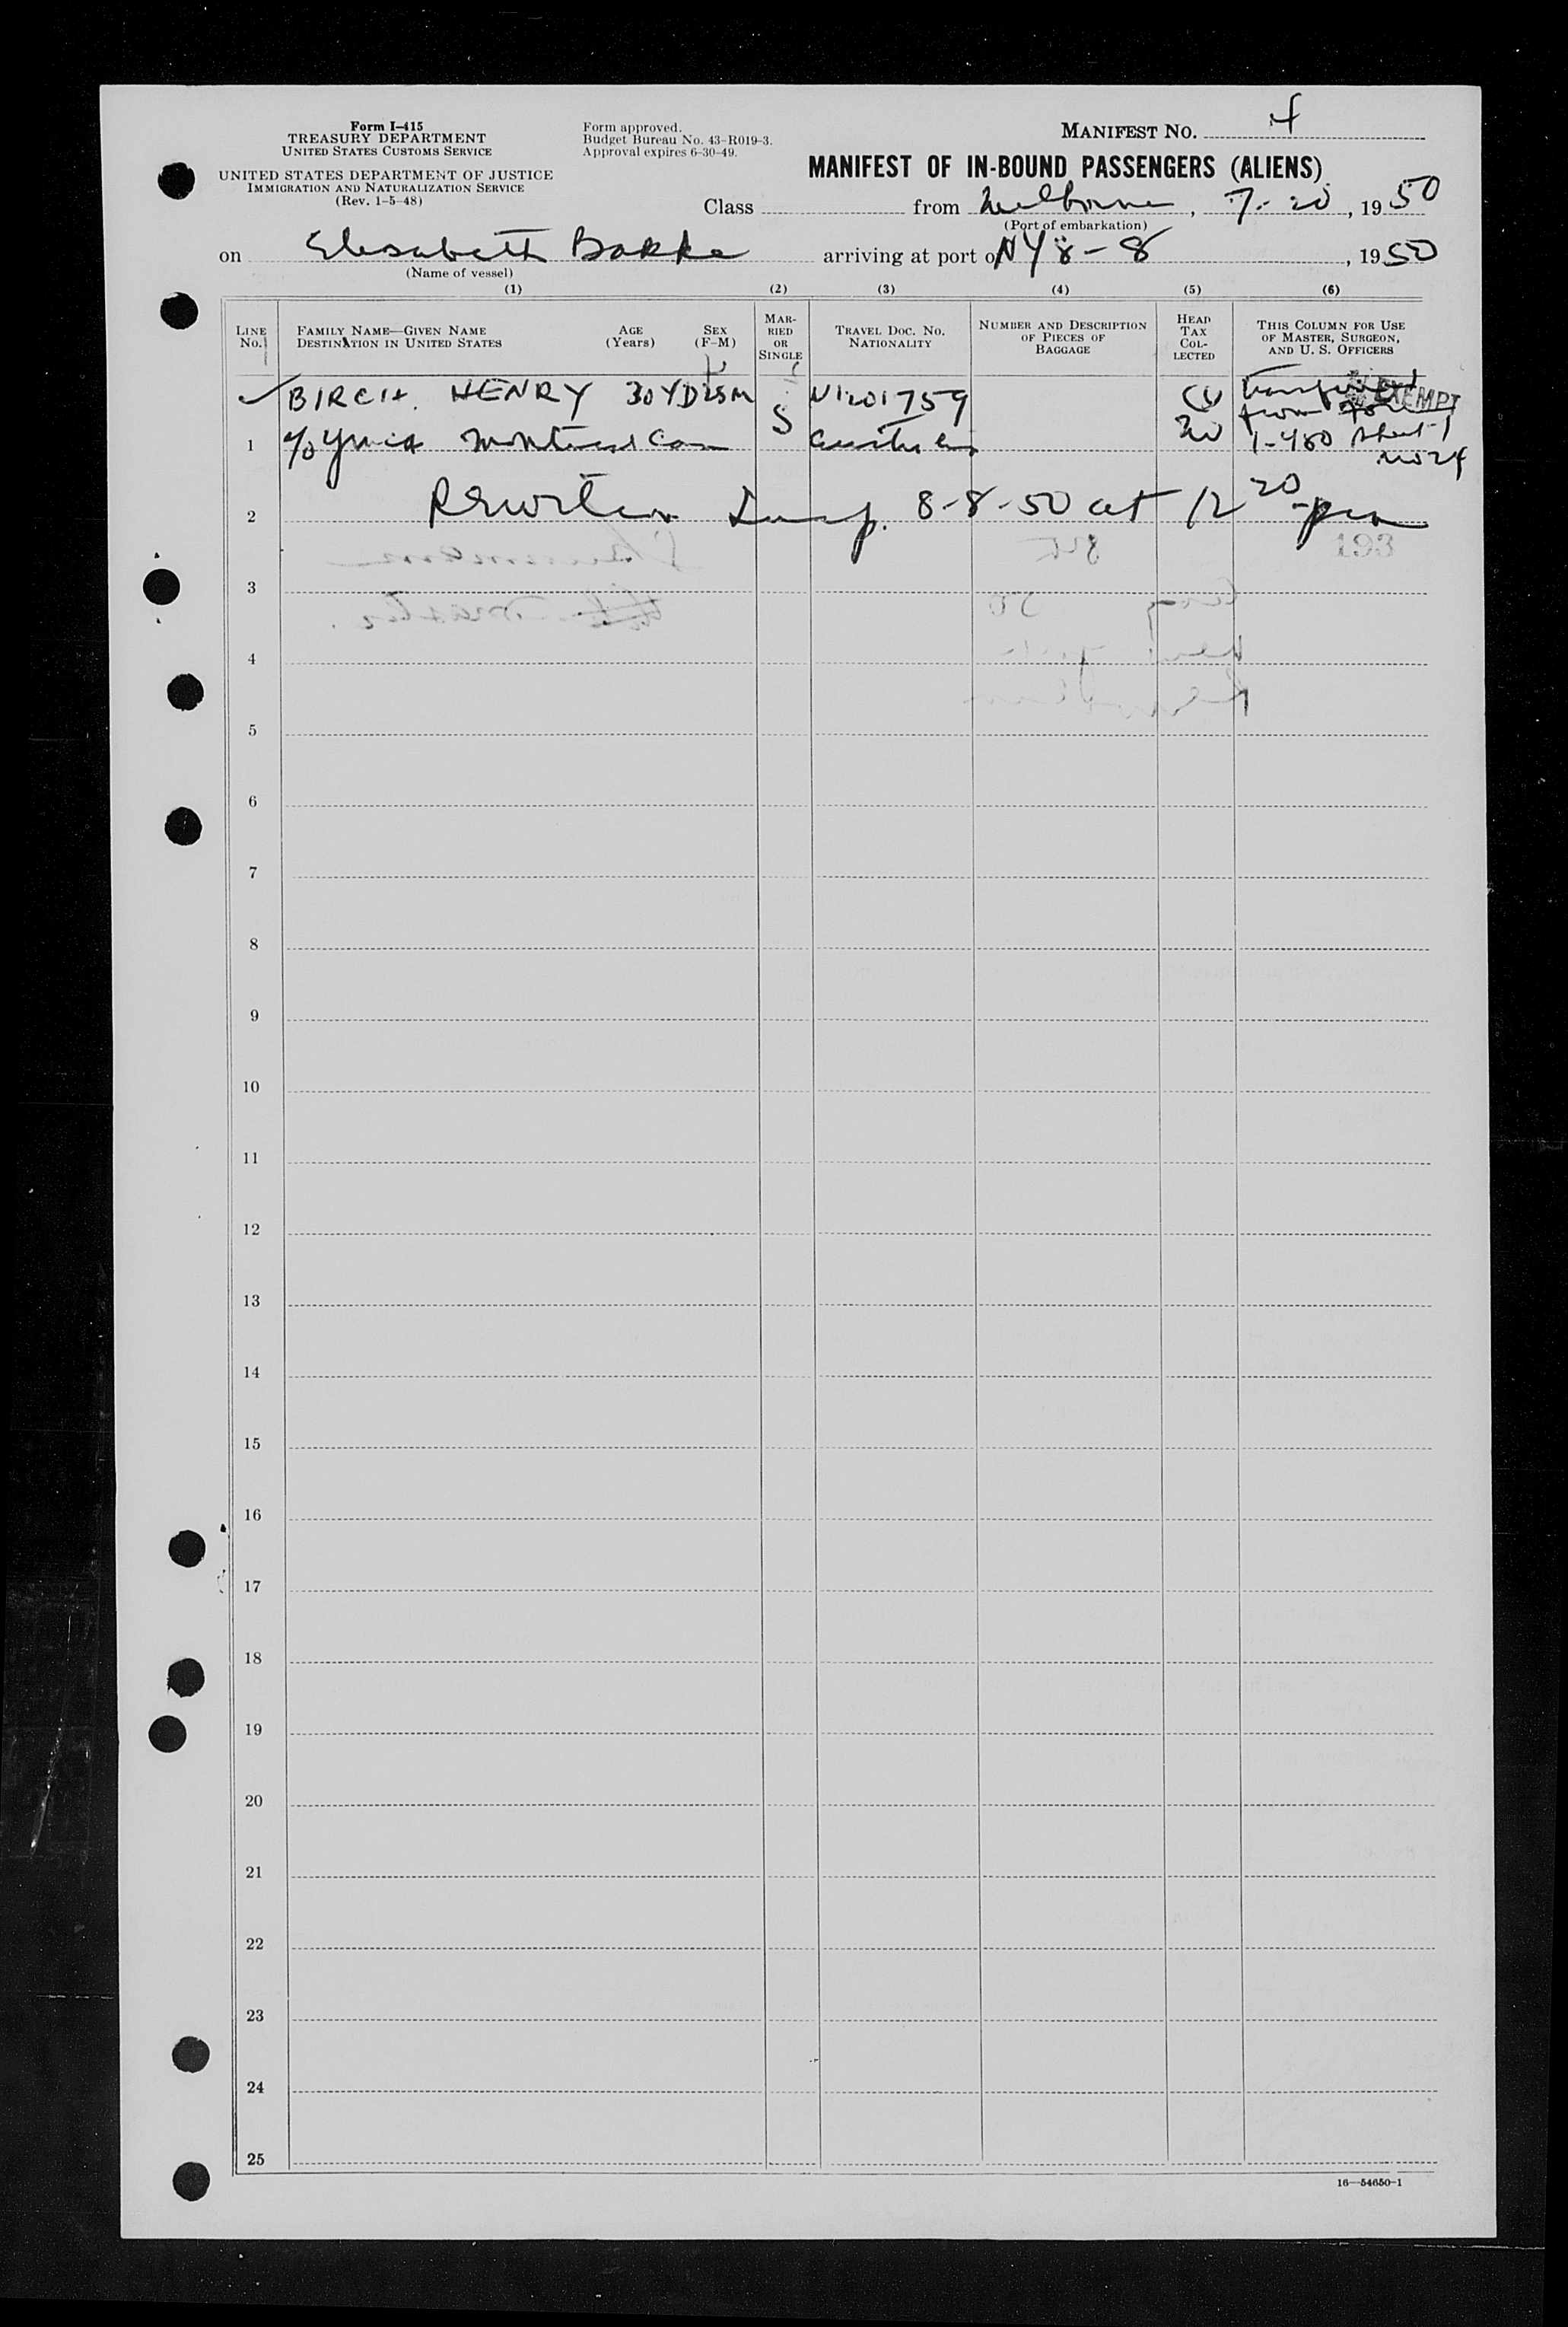 Form I-415
TREASURY DEPARTMENT
UNITED STATES CUSTOMS SERVICE
UNITED STATES DEPARTMENT OF JUSTICE
IMMIGRATION AND NATURALIZATION SERVICE
(Rev. 1-5-48)
Form approved.
Budget Bureau No. 43-R019-3.
Approval expires 6-30-49.
MANIFEST NO. 4
MANIFEST OF IN-BOUND PASSENGERS (ALIENS)
Class from Melbourne, 7-20, 1950
(Port of embarkation)
on Elisabeth Bakke arriving at port of NY 8-8, 1950
(Name of vessel)
(1) (2) (3) (4) (5) (6)
LINE NO.
FAMILY NAME—GIVEN NAME
DESTINATION IN UNITED STATES
AGE
(Years)
SEX
(F-M)
MARRIED OR SINGLE
TRAVEL DOC. NO.
NATIONALITY
NUMBER AND DESCRIPTION OF PIECES OF BAGGAGE
HEAD TAX COLLECTED
THIS COLUMN FOR USE OF MASTER, SURGEON, AND U. S. OFFICERS
BIRCH, HENRY 30 M S 1201759 EXEMPT
1 c/o YMCA Montreal Can from
1-480 sheet 1
no 24
2 8-8-50 at 12 20 pm
193
3
4
5
6
7
8
9
10
11
12
13
14
15
16
17
18
19
20
21
22
23
24
25
16—54650-1